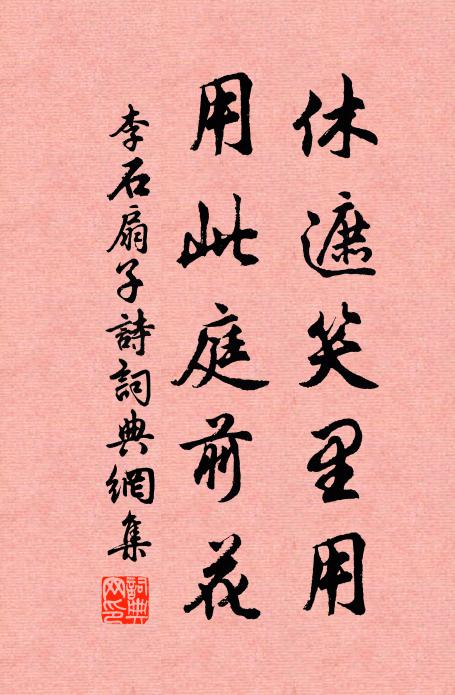 休遮笑里用
用此庭前花
李石扇子詩詞典網集
詞典
网印